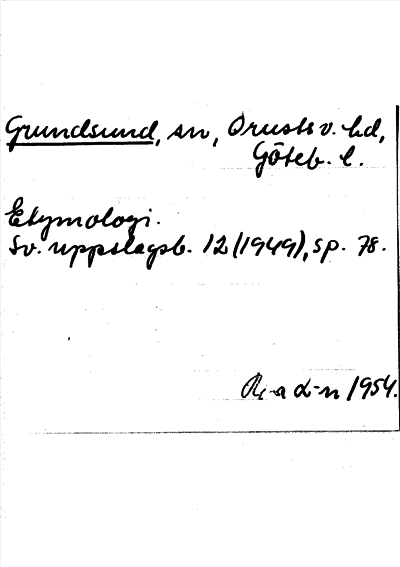 Grundsund, sn, Orusts v. hd,
Göteb. l.
Etymologi.
Sv. uppslagsb. 12 (1949), sp. 78.
1954.